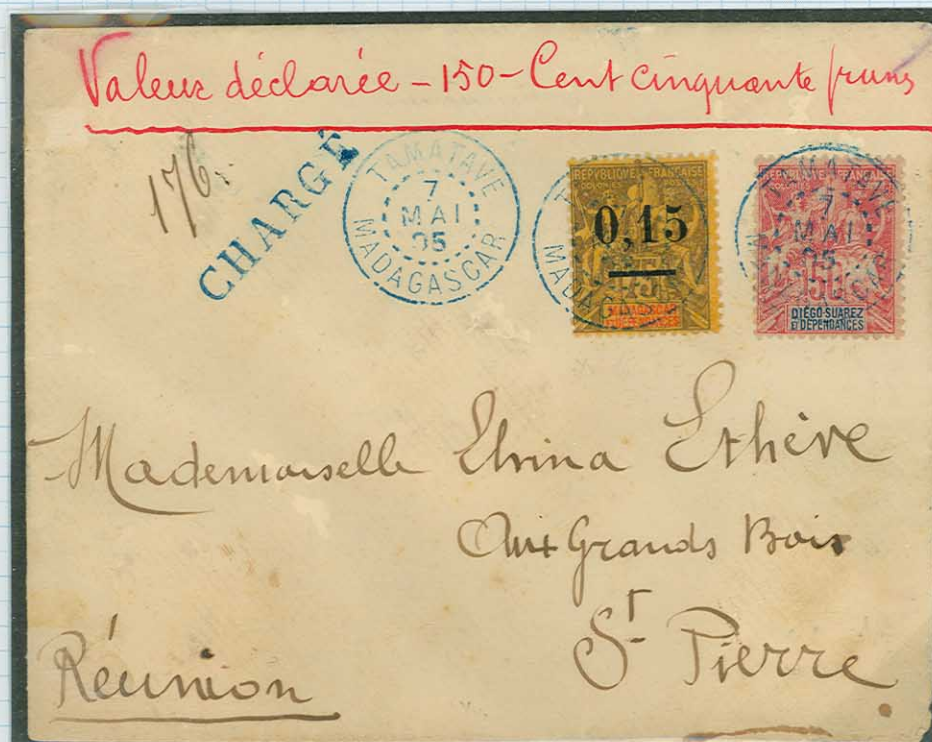 Valeur déclarée - 150 - Cent cinquante francs
176.
CHARGÉ
TAMATAVE
7
MAI
05
MADAGASCAR
REPUBLIQUE FRANÇAISE
COLONIES
0,15
75
MADAGASCAR
ET DEPENDANCES
TAMATAVE
7
MAI
05
REPUBLIQUE FRANÇAISE
COLONIES
50
DIÉGO-SUAREZ
ET DÉPENDANCES
Mademoiselle Elvina Ethève
Aux Grands Bois
St Pierre
Réunion